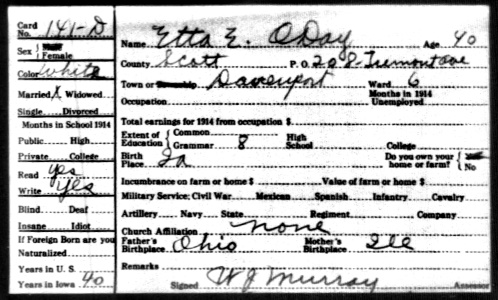 Card No. 141-D
Sex Male Female
Color White
Married X Widowed
Single Divorced
Months in School 1914
Public High
Private College
Read yes
Write yes
Blind Deaf
Insane Idiot
If Foreign Born are you
Naturalized
Years in U. S.
Years in Iowa 40
Name Etta E. ODay Age 40
County Scott P. O. 208 Tremont ave
Town or Township Davenport Ward 6
Occupation Months in 1914 Unemployed
Total earnings for 1914 from occupation $
Extent of Education Common
Grammar 8 High School College
Birth Place Ia Do you own your home or farm? Yes No
Incumbrance on farm or home $ Value of farm or home $
Military Service: Civil War Mexican Spanish Infantry Cavalry
Artillery Navy State Regiment Company
Church Affiliation none
Father's Birthplace Ohio Mother's Birthplace Ill
Remarks
Signed W J Murray Assessor